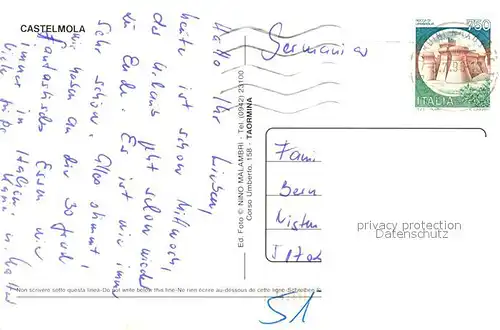 CASTELMOLA
Hallo Ihr Lieben,
heute ist schon Mittwoch,
der Urlaub geht schon wieder
zu Ende. Es ist wie immer
sehr schön. Alles stimmt!
Wir haben an die 30 Grad!
Fantastisches Essen wie
immer in Italien.
Viele Grüße
Ed. Foto © NINO MALAMBRI - Tel. (0942) 23100
Corso Umberto, 158 - TAORMINA
Germania
750
ITALIA
Fami
Bern
privacy protection
Datenschutz
Non scrivere sotto questa linea-Do not write below this line-Ne rien écrire au-dessous de cette ligne-Schreiben
51